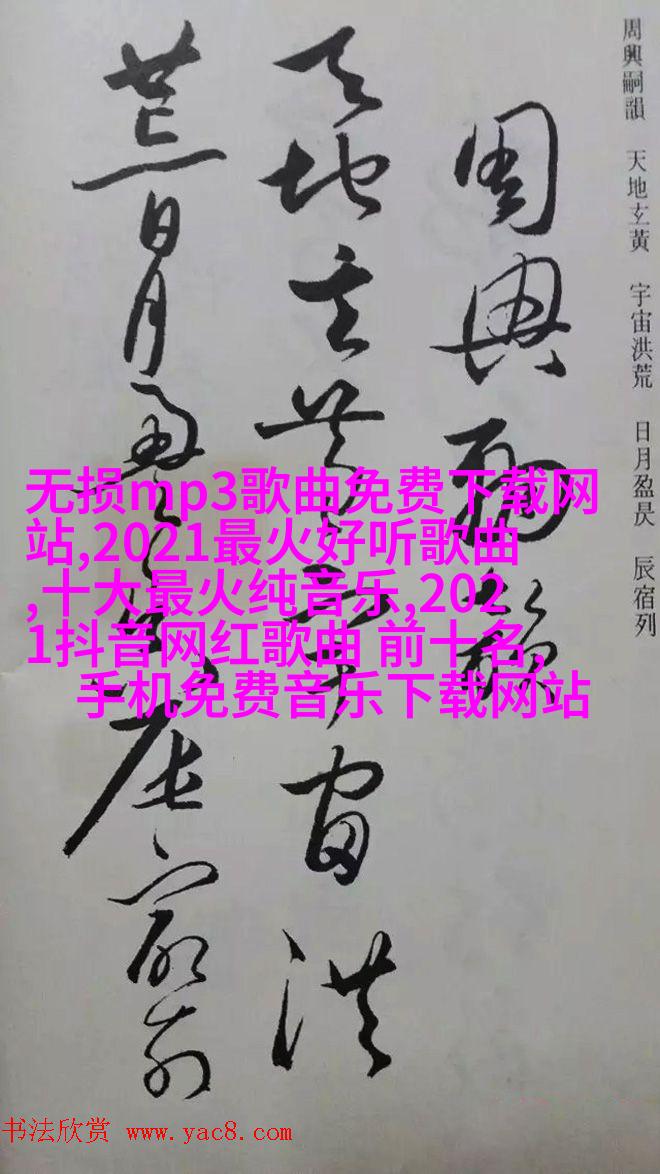 周興嗣韻 天地玄黃 宇宙洪荒 日月盈昃 辰宿列
周興嗣韻
天地玄黃宇宙洪
荒日月盈昃辰宿列
无损mp3歌曲免费下载网
站,2021最火好听歌曲
,十大最火纯音乐,202
1抖音网红歌曲 前十名,
手机免费音乐下载网站
书法欣赏 www.yac8.com